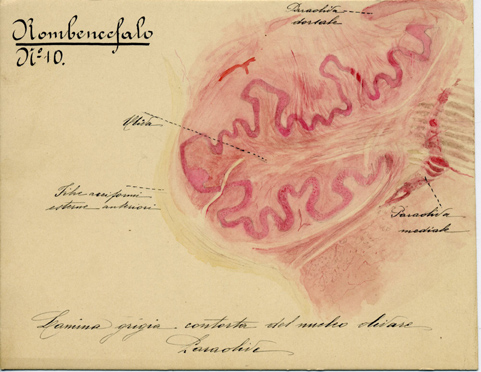 Rombencefalo
Nº 10.
Paraoliva
dorsale
Oliva
Fibre arciformi
esterne anteriori
Paraoliva
mediale
Lamina grigia contorta del nucleo olivare
Paraolive